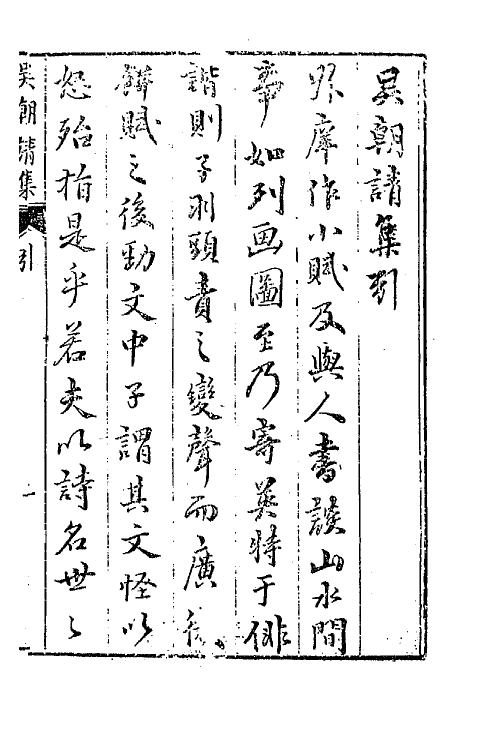 吳朝請集引
叔庠作小賦及與人書談山水間
事如列画圖至乃寄英特于俳
諧則子羽頭責之變聲而廣微
䴵賦之後勁文中子謂其文怪以
怒殆指是乎若夫以詩名世之
吳朝請集 引 一